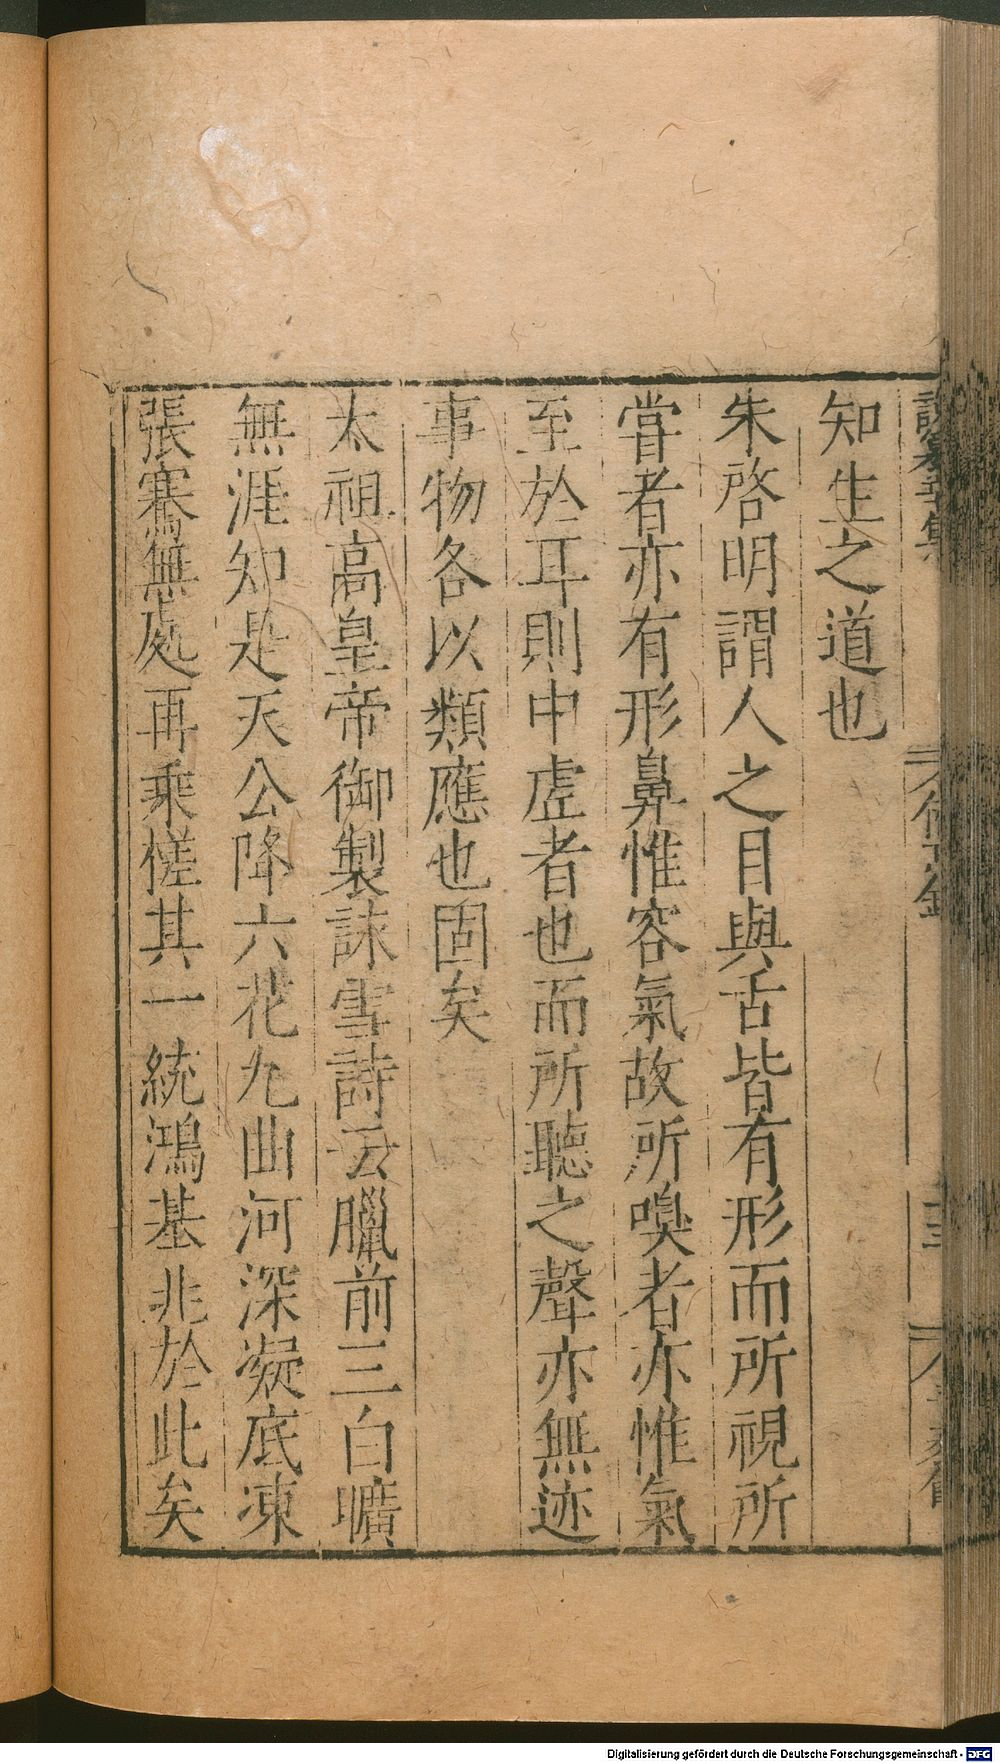 知生之道也
朱啓明謂人之目與舌皆有形而所視所
嘗者亦有形鼻惟容氣故所嗅者亦惟氣
至於耳則中虗者也而所聽之聲亦無迹
事物各以類應也固矣
太祖高皇帝御製詠雪詩云臘前三白曠
無涯知是天公降六花九曲河深凝底凍
張騫無處再乘槎其一統鴻基兆於此矣
Digitalisierung gefördert durch die Deutsche Forschungsgemeinschaft - DFG